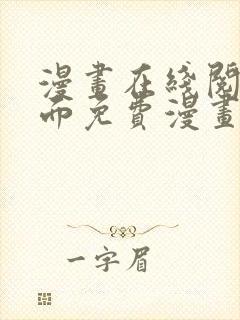 漫畫在綫閱
兩免費漫畫
一字眉